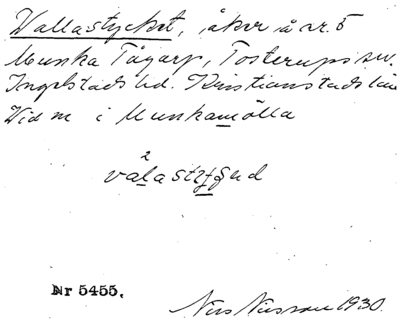 Vallastycket, åker å nr. 5
Munka Tågarp, Tosterups sn.
Ingelstads hd. Kristianstads län
Vid m i Munkamölla
Nr 5455.
Nils Nilsson 1930.